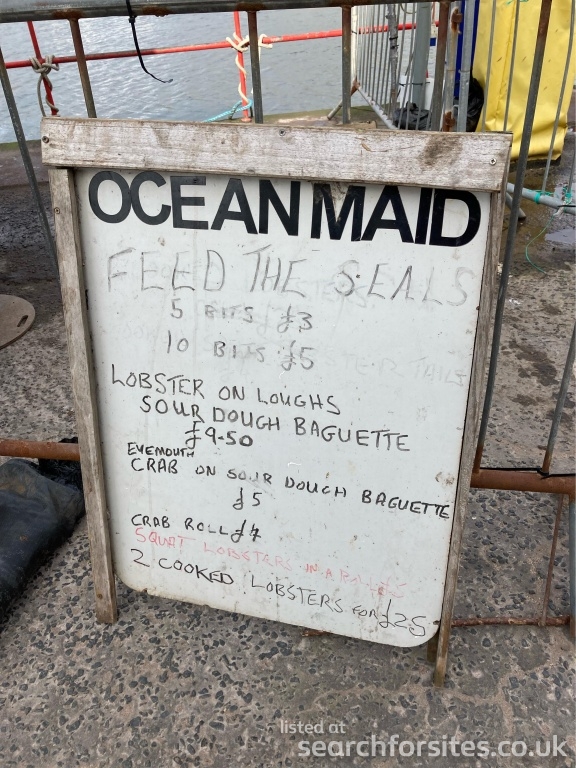 OCEAN MAID
FEED THE SEALS
5 BITS £3
10 BITS £5
LOBSTER ON LOUGHS
SOUR DOUGH BAGUETTE
£9.50
EYEMOUTH
CRAB ON SOUR DOUGH BAGUETTE
£5
CRAB ROLL £4
SQUAT LOBSTERS IN A
2 COOKED LOBSTERS FOR £25
listed at
searchforsites.co.uk